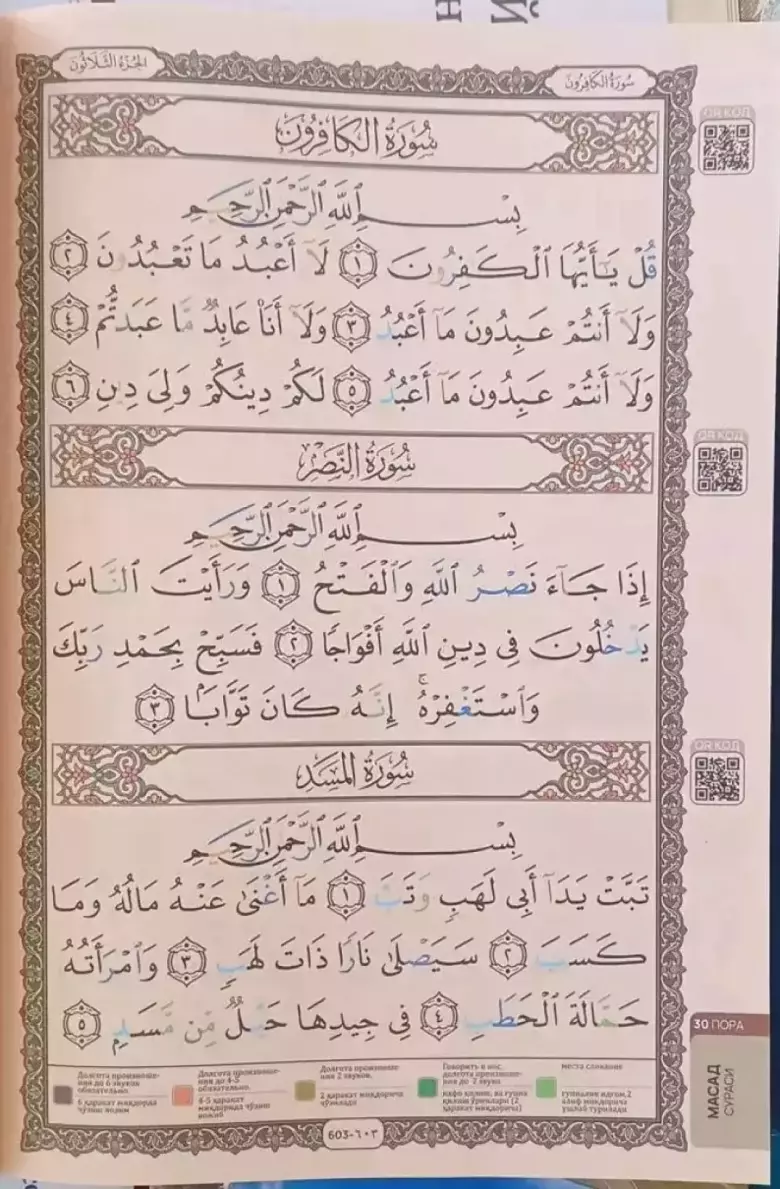 الجزء الثلاثون
سورة الكافرون
QR КОД
سُورَةُ الكَافِرُونَ
بِسْمِ ٱللَّهِ ٱلرَّحْمَٰنِ ٱلرَّحِيمِ
قُلْ يَٰٓأَيُّهَا ٱلْكَٰفِرُونَ ١ لَآ أَعْبُدُ مَا تَعْبُدُونَ ٢
وَلَآ أَنتُمْ عَٰبِدُونَ مَآ أَعْبُدُ ٣ وَلَآ أَنَا۠ عَابِدٌ مَّا عَبَدتُّمْ ٤
وَلَآ أَنتُمْ عَٰبِدُونَ مَآ أَعْبُدُ ٥ لَكُمْ دِينُكُمْ وَلِىَ دِينِ ٦
QR КОД
سُورَةُ النَّصْرِ
بِسْمِ ٱللَّهِ ٱلرَّحْمَٰنِ ٱلرَّحِيمِ
إِذَا جَآءَ نَصْرُ ٱللَّهِ وَٱلْفَتْحُ ١ وَرَأَيْتَ ٱلنَّاسَ
يَدْخُلُونَ فِى دِينِ ٱللَّهِ أَفْوَاجًا ٢ فَسَبِّحْ بِحَمْدِ رَبِّكَ
وَٱسْتَغْفِرْهُ ۚ إِنَّهُۥ كَانَ تَوَّابًۢا ٣
QR КОД
سُورَةُ المَسَدِ
بِسْمِ ٱللَّهِ ٱلرَّحْمَٰنِ ٱلرَّحِيمِ
تَبَّتْ يَدَآ أَبِى لَهَبٍ وَتَبَّ ١ مَآ أَغْنَىٰ عَنْهُ مَالُهُۥ وَمَا
كَسَبَ ٢ سَيَصْلَىٰ نَارًا ذَاتَ لَهَبٍ ٣ وَٱمْرَأَتُهُۥ
حَمَّالَةَ ٱلْحَطَبِ ٤ فِى جِيدِهَا حَبْلٌ مِّن مَّسَدٍۭ ٥
30 ПОРА
МАСАД
СУРАСИ
Долгота произноше-
ния до 6 звуков
обязательно.
6 ҳаракат миқдорда
чўзиш лозим
Долгота произноше-
ния до 4-5
обязательно.
4-5 ҳаракат
миқдорида чўзиш
Долгота произноше-
ния 2 звуков.
2 ҳаракат миқдорича
чўзилади
Говорить в нос,
долгота произноше-
ния до 2 звука
места слияния
603-٦٠٣